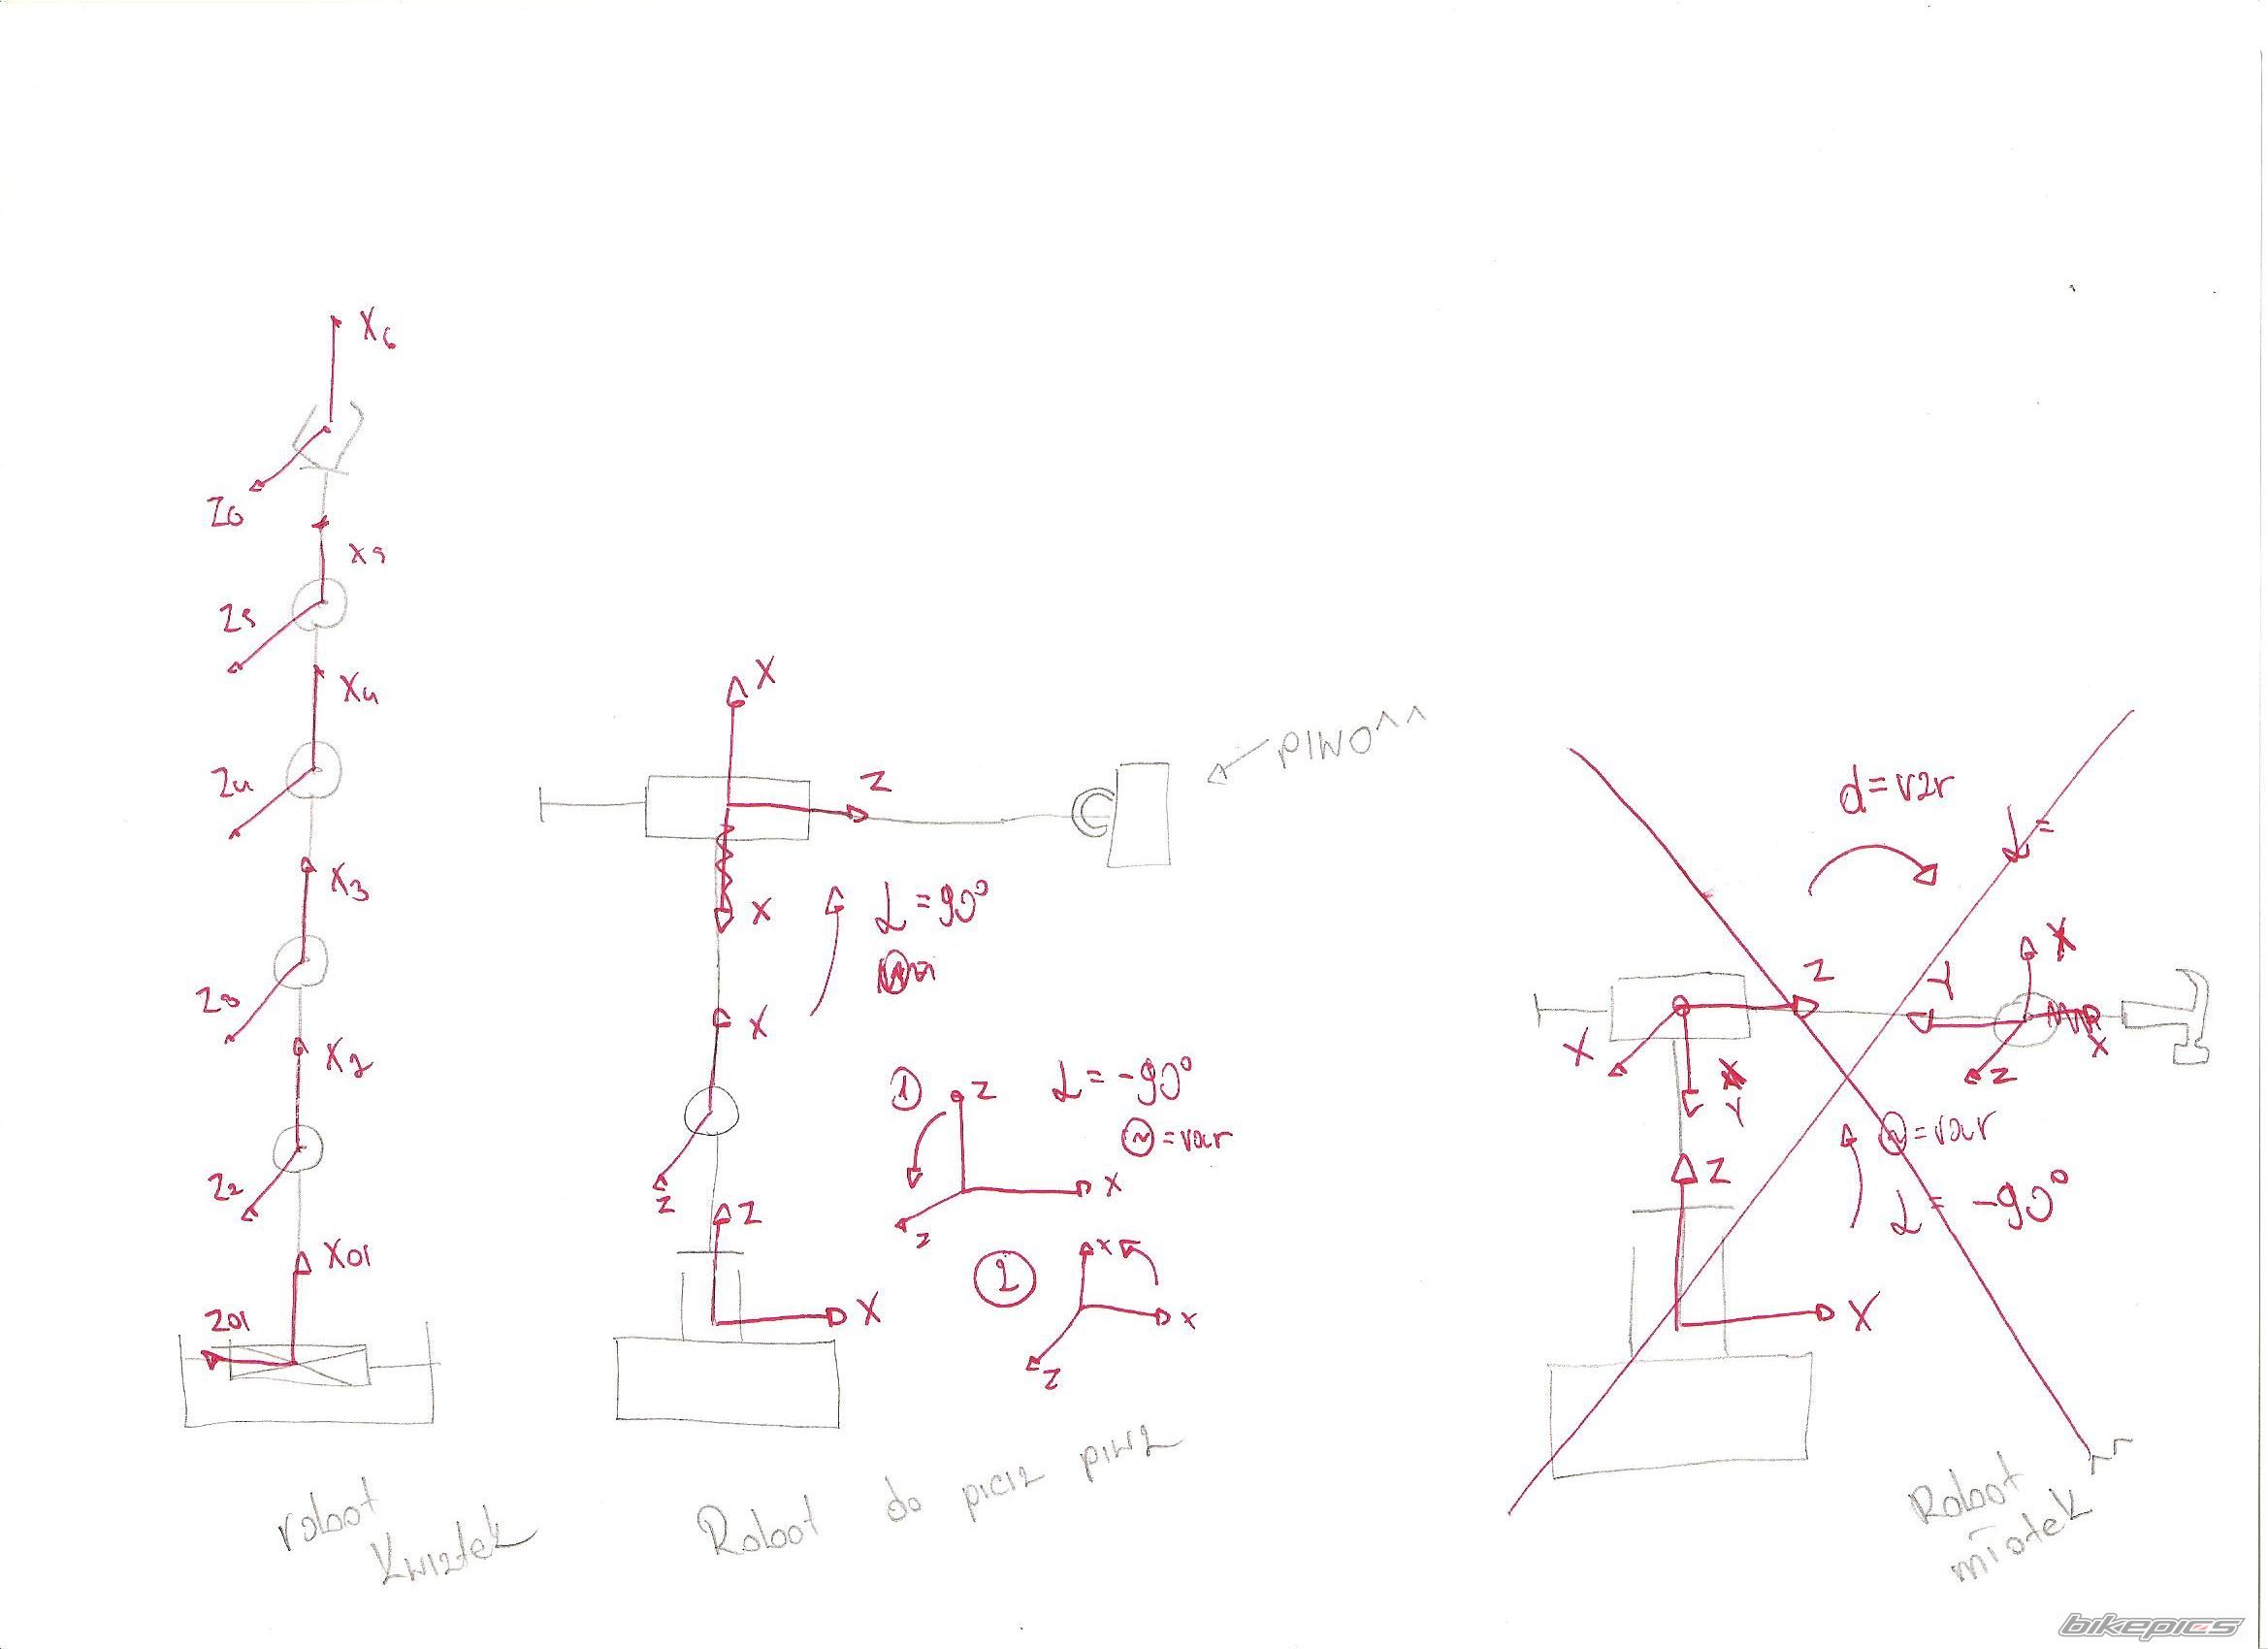 X6
Z6
X5
Z5
X4
Z4
X3
Z3
X2
Z2
X01
Z01
robot
Kwiatek
X
Z
PIWO^^
X
α = 90°
X
Z
Z
X
① Z
α = -90°
Θ = var
X
Z
② X
X
Z
Robot do picia piwa
d = var
α =
Z
Y
X
X
Y
Z
X
Θ = var
α = -90°
Z
X
Robot
młotek
bikepics